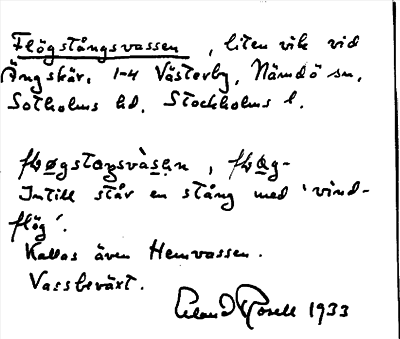 Flögstångsvassen, liten vik vid
Ängskär, 1-4 Västerby, Nämdö sn,
Sotholms hd. Stockholms l.
fløgstaŋsvàsen, fløg-
Intill står en stång med 'vind-
flög'.
Kallas även Hemvassen.
Vassbeväxt.
Erland Rosell 1933